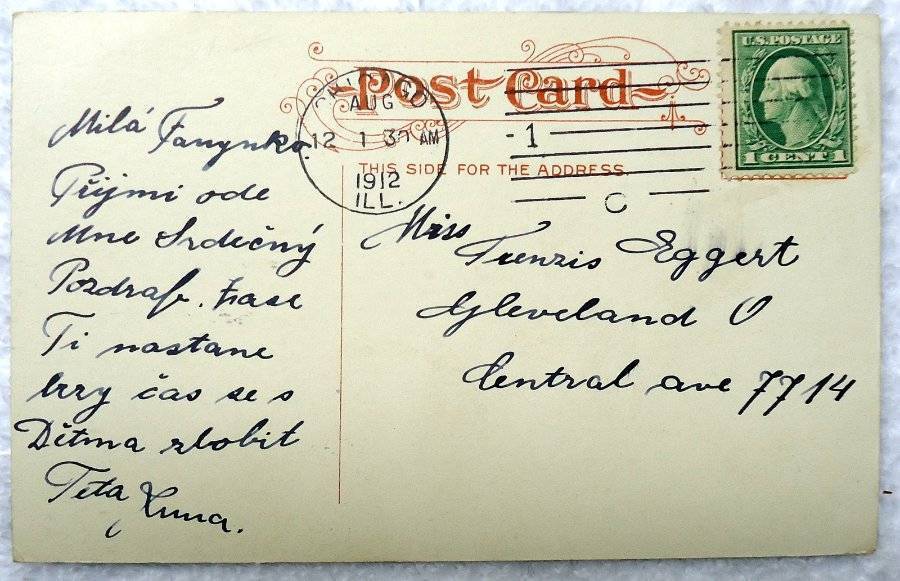 Post Card
CHICAGO
AUG
12 1 30 AM
1912
ILL.
1
C
THIS SIDE FOR THE ADDRESS.
U.S. POSTAGE
1 CENT 1
Milá Fanynko.
Příjmi ode
Mne Srdečný
Pozdraf. zase
Ti nastane
brzy čas se s
Dětma zlobit
Teta
Miss
Eggert
Gleveland O
Central ave 7714